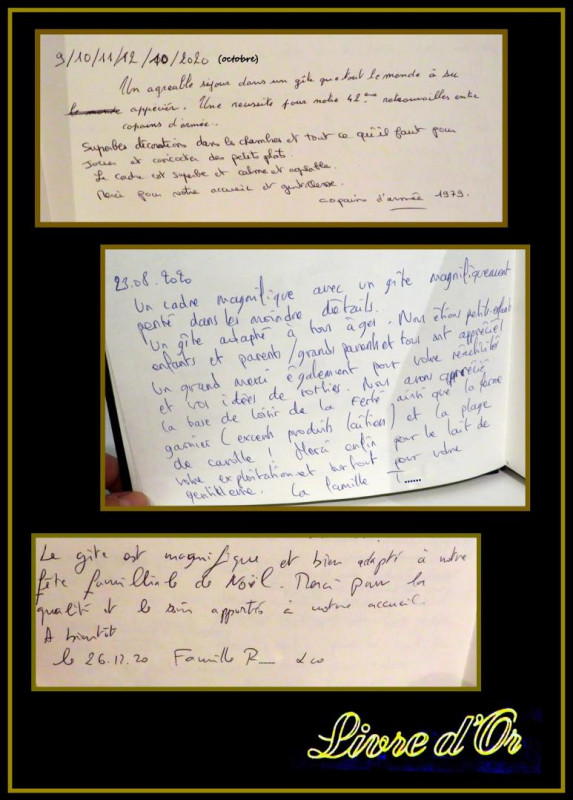 9/10/11/12/10/2020 (octobre)
Un agréable séjour dans un gîte que tout le monde à su
le monde apprécier. Une reussite pour notre 42ème retrouvailles entre
copains d'armée.
Superbes décorations dans les chambres et tout ce qu'il faut pour
jouer et concocter des petits plats.
Le cadre est superbe et calme et agréable.
Merci pour votre accueil et gentillesse.
copains d'armée 1979.
23.08.2020
Un cadre magnifique avec un gîte magnifiquement
pensé dans les moindre détails.
Un gîte adapté à tous âges. Nous étions petits-enfants
enfants et parents/grands parents et tous ont apprécié!
Un grand merci également pour votre réactivité
et vos idées de sorties. Nous avons apprécié
la base de loisir de la Ferté ainsi que la ferme
garnier (excents produits laitiers) et la plage
de carolle! Merci enfin pour le lait de
votre exploitation et surtout pour votre
gentillesse. La famille T......
Le gîte est magnifique et bien adapté à notre
fête familliale de Noël. Merci pour la
qualité et le soin apportés à notre accueil.
A bientôt
le 26.12.20 Famille R__
Livre d'Or